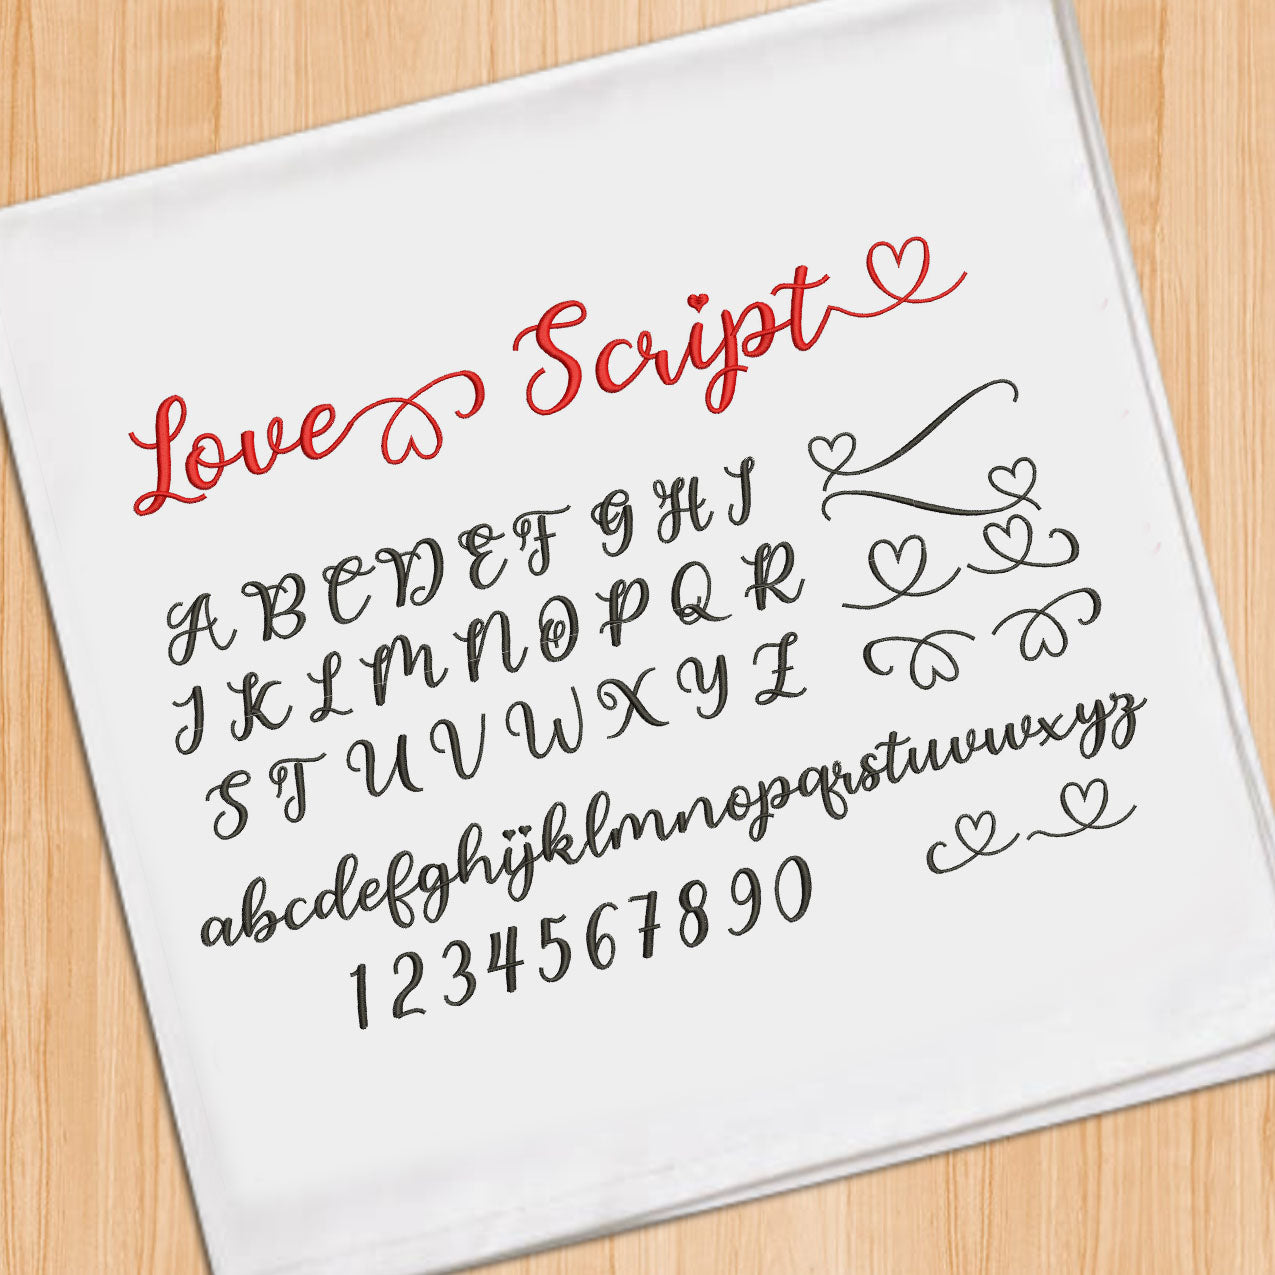 Love Script
A B C D E F G H I
J K L M N O P Q R
S T U V W X Y Z
abcdefghijklmnopqrstuvwxyz
1 2 3 4 5 6 7 8 9 0